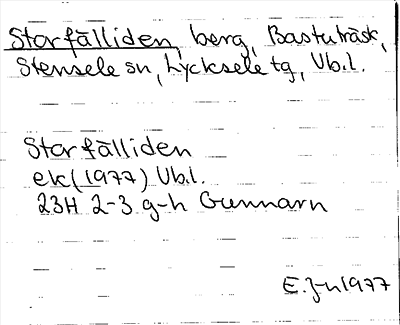 Storfälliden, berg, Bastuträsk,
Stensele sn, Lycksele tg, Vb.l.
Storfälliden
ek (1977) Vb.l.
23H 2-3 g-h Gunnarn
E. J-n 1977